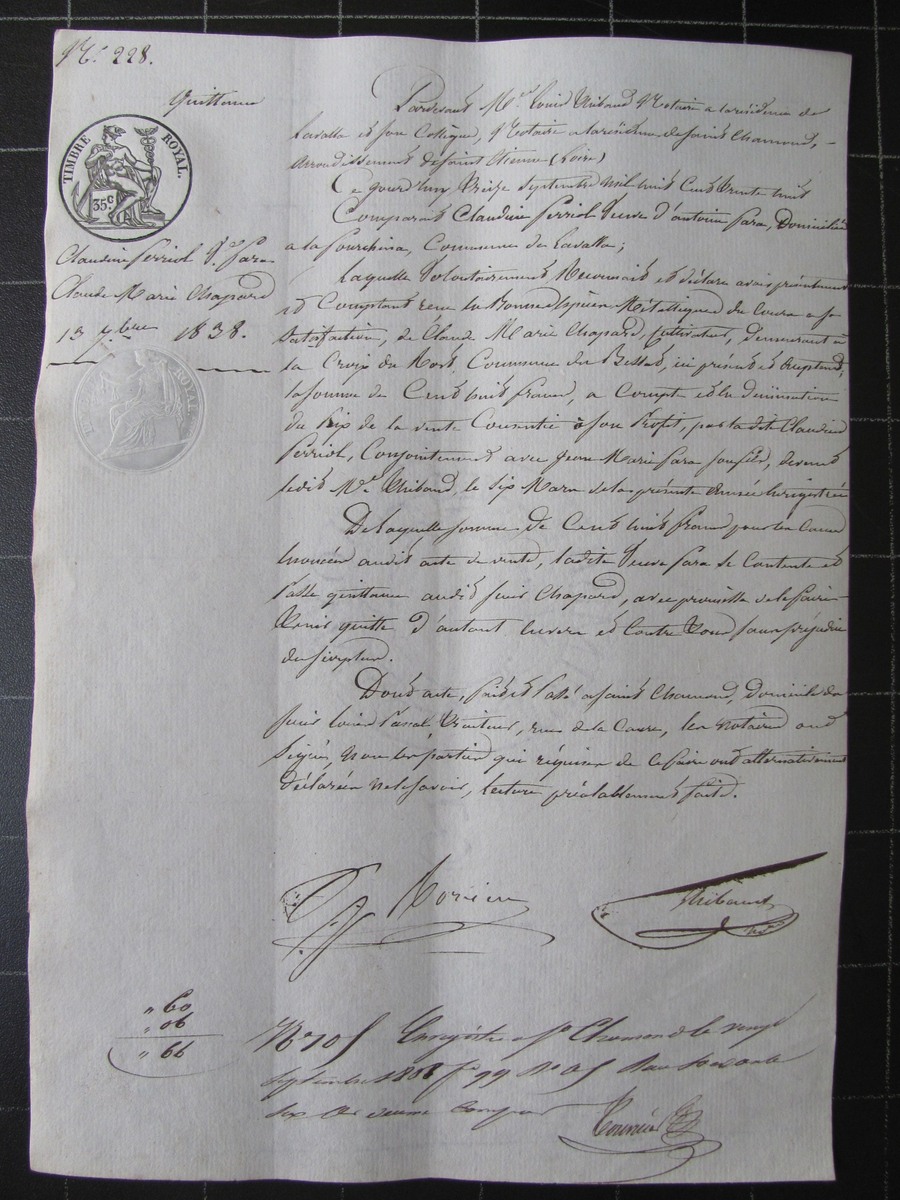 N.° 228.
Quittance
TIMBRE ROYAL.
35c
Claudine Ferriol V.e Fara
Claude Marie Chapard
13 7.bre 1838.
Pardevant M.e Louis Thibaud Notaire a la résidence de
Lavalla et son Collègue, Notaire a la résidence de Saint Chamond,
arrondissement de Saint Etienne (Loire)
Ce jourd'huy Treize Septembre Mil huit Cent Trente huit
Comparait Claudine Ferriol Veuve d'antoine Fara, Domiciliée
a la Fourchina, Commune de Lavalla;
Laquelle Volontairement Reconnait et déclare avoir présentement
et Comptant recu en Bonnes Espèces Métalliques du Cours a sa
Satisfaction, de Claude Marie Chapard, Cultivateur, Demeurant a
la Croix du Mort, Commune du Bessat, ici présent et acceptant,
la somme de Cent huit francs, a Compte et en déduction
du Prix de la vente Consentie a son Profit, par la dite Claudine
Ferriol, Conjointement avec Jean Marie Fara son fils, devant
ledit M.e Thibaud, le Six Mars de la présente Année Enregistrée
De laquelle somme de Cent huit francs pour les Causes
énoncées audit acte de vente, ladite Veuve Fara se Contente et
Passe quittance audit Sieur Chapard, avec promesse de le faire
Tenir quitte d'autant Envers et Contre Tous sans préjudice
du Surplus.
Dont acte, fait et Passé a Saint Chamond, domicile du
Sieur Louis Pascal Traiteur, rue de la Caure, les notaires ont
Signé, Non les parties qui réquises de le faire ont alternativement
Déclarées ne le savoir, lecture préalablement faite.
Thibaud
" 60
" 06
" 66
N° 105 Enregistré a St Chamond le vingt
Septembre 1838 f° 99 R° Reçu soixante
six Cmes decime compris